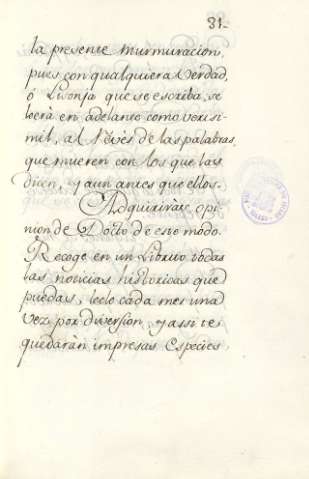 81.
la presente murmuracion,
pues con qualquiera verdad,
ó Lisonja que se escriba, se
leerá en adelante como verisi-
mil, al rêvès de las palabras,
que mueren con los que las
dicen, y aun antes que ellos.
Adquiriràs opi-
nion de Docto de este modo.
Recoge en un Librito todas
las noticias historicas que
puedas, leelo cada mes una
vez por diversion, y assi te
quedaràn impresas Especies